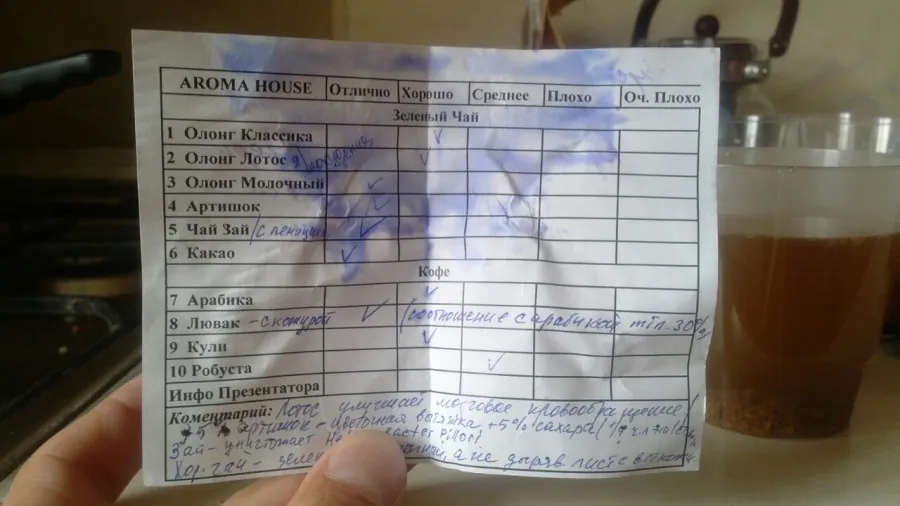 AROMA HOUSE Отлично Хорошо Среднее Плохо Оч. Плохо
Зеленый Чай
1 Олонг Классика
2 Олонг Лотос
3 Олонг Молочный
4 Артишок
5 Чай Зай (с
6 Какао
Кофе
7 Арабика
8 Лювак - с кожурой (соотношение с арабикой 30%
9 Кули
10 Робуста
Инфо Презентатора
Коментарий: Лотос улучшает мозговое кровообращение!
артишок - цветочная вытяжка +5% сахара
Зай - уничтожает
зелен а не листе